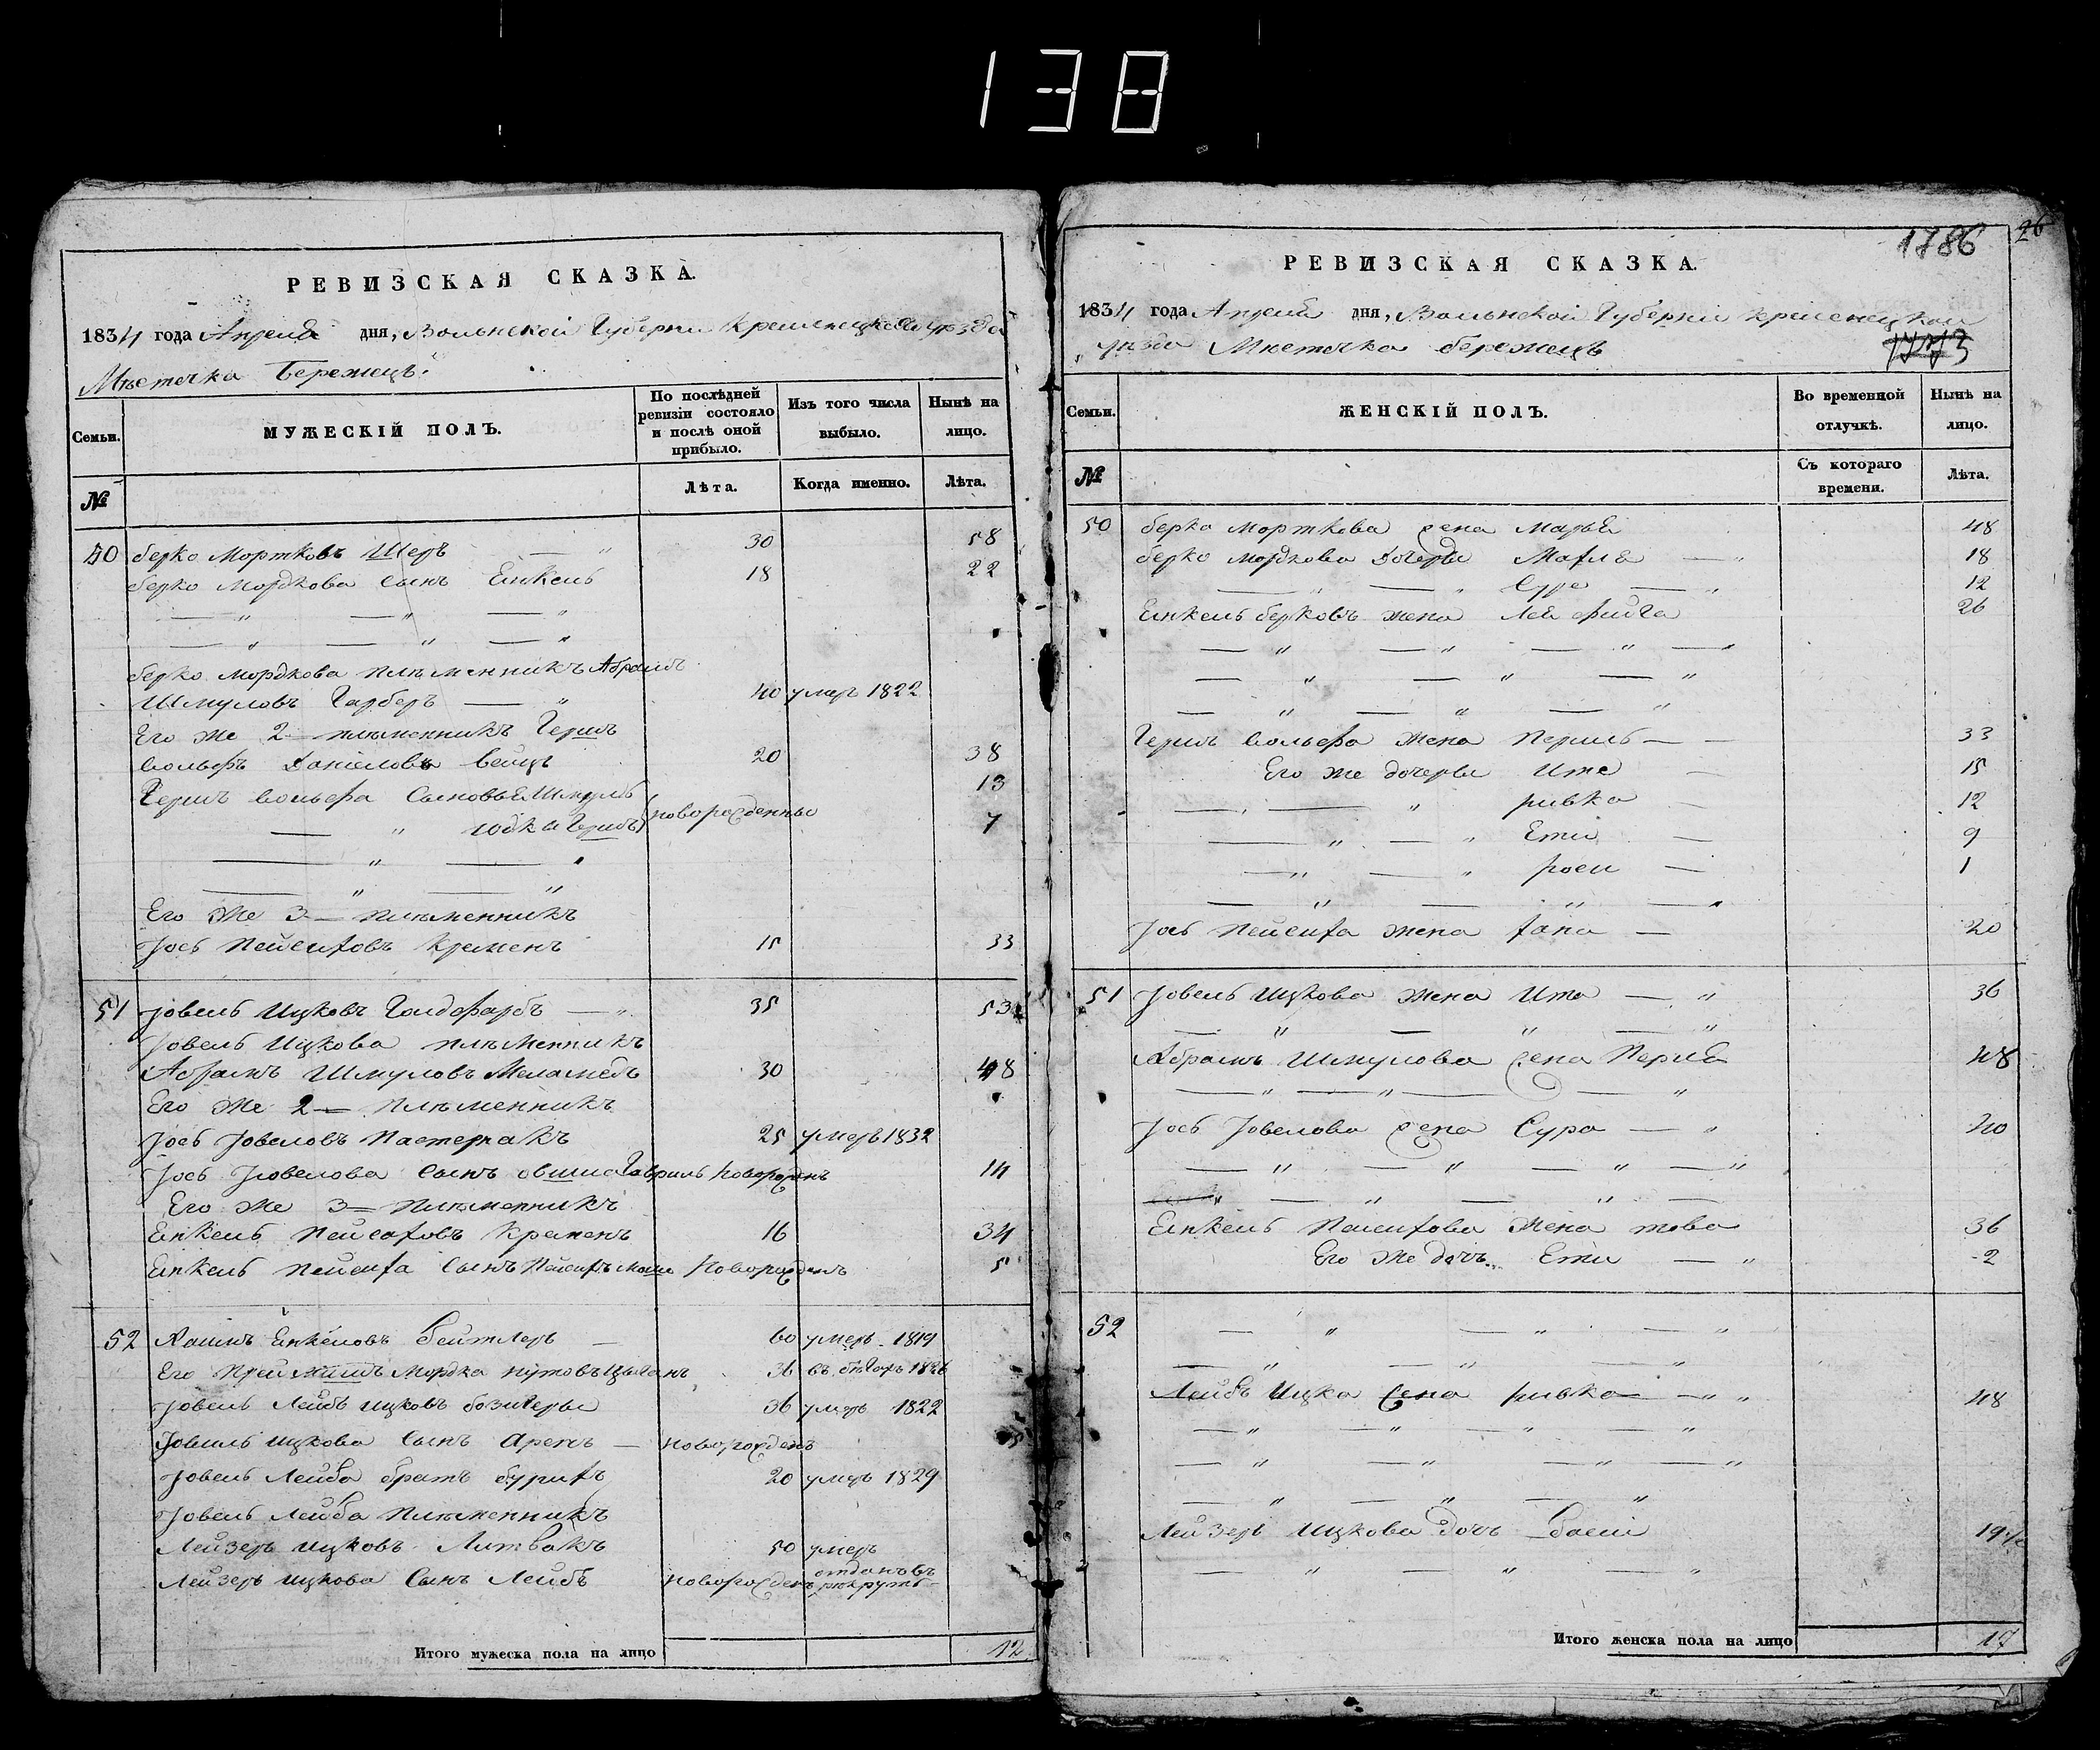 138
РЕВИЗСКАЯ СКАЗКА.
1834 года Апреля дня, Волынской Губерни Кременецкаго уезда
Мѣстечка Бережецъ.
Семьи.
МУЖЕСКІЙ ПОЛЪ.
По послѣдней ревизіи состояло и послѣ оной прибыло.
Изъ того числа выбыло.
Нынѣ на лицо.
№
Лѣта.
Когда именно.
Лѣта.
50 берко Мортковъ Шеръ 30 58
берко Мордкова Сынъ Еинкель 18 22
берко Мордкова племенникъ Абрамъ
Шмуловъ Гарберъ 40 умеръ 1822
Его же 2 племенникъ Гершъ
вольфъ Даніеловъ 20 38
Гершъ вольфа Сыновья Шмуль 13
новорожденны
юдка Гершъ 7
Его же 3 племенникъ
Іось Пейсиховъ Кременъ 15 33
51 Іовель Ицковъ Голдфарбъ 35 53
Іовель Ицкова племенникъ
Абрамъ Шмуловъ Меламедъ 30 48
Его же 2 племенникъ
Іось Іовеловъ Пастернакъ 25 умеръ 1832
Іось Іовелова Сынъ овшиа Гавриль новорожденъ 14
Его же 3 племенникъ
Еинкель Пейсаховъ Кременъ 16 34
Еинкель Пейсиха Сынъ Пейсихъ Новорожденъ 5
52 Еинкеловъ Бейтлеръ 60 умеръ 1819
Его Мордка 36 въ 1826
Іовель Лейбъ Ицковъ 36 умеръ 1822
Іовель Ицкова Сынъ Аренъ новорожденъ
Іовель Лейба братъ бурихъ 20 умеръ 1829
Іовель Лейба племенникъ
Лейзеръ Ицковъ Литвакъ 50 умеръ
Лейзеръ Ицкова Сынъ Лейбъ новорожденъ отданъ въ рекруты
Итого мужеска пола на лицо 12
1786
26
РЕВИЗСКАЯ СКАЗКА.
1834 года Апреля дня, Волынской Губерніи Кременецкаго
уезда Мнетечка бережецъ
1773
Семьи.
ЖЕНСКІЙ ПОЛЪ.
Во временной отлучкѣ.
Нынѣ на лицо.
№
Съ котораго времени.
Лѣта.
50 берко Морткова жена Марья 48
берко мордкова дочеры Махля 18
Суре 12
Еинкель берковъ жена Лея фийга 26
Гершъ вольфа жена Перль 33
Его же дочеры Ите 15
ривка 12
Ети 9
роси 1
Іось Пейсиха жена хана 20
51 Іовель Ицкова жена Ита 36
Абрамъ Шмулова жена Перля 48
Іось Іовелова жена Сура 40
Еинкель Пейсихова жена това 36
Его же дочь Ети 2
52
Лейбъ Ицка жена ривка 48
Лейзеръ Ицкова дочь басіи 19 1/2
Итого женска пола на лицо 17